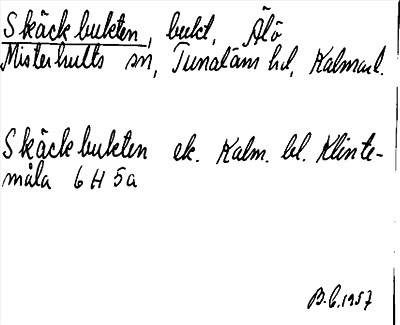 Skäckbukten, bukt, Älö
Misterhults sn, Tunaläns hd, Kalmar l.
Skäckbukten ek. Kalm. bl. Klinte-
måla 6 H 5a
B.C. 1957